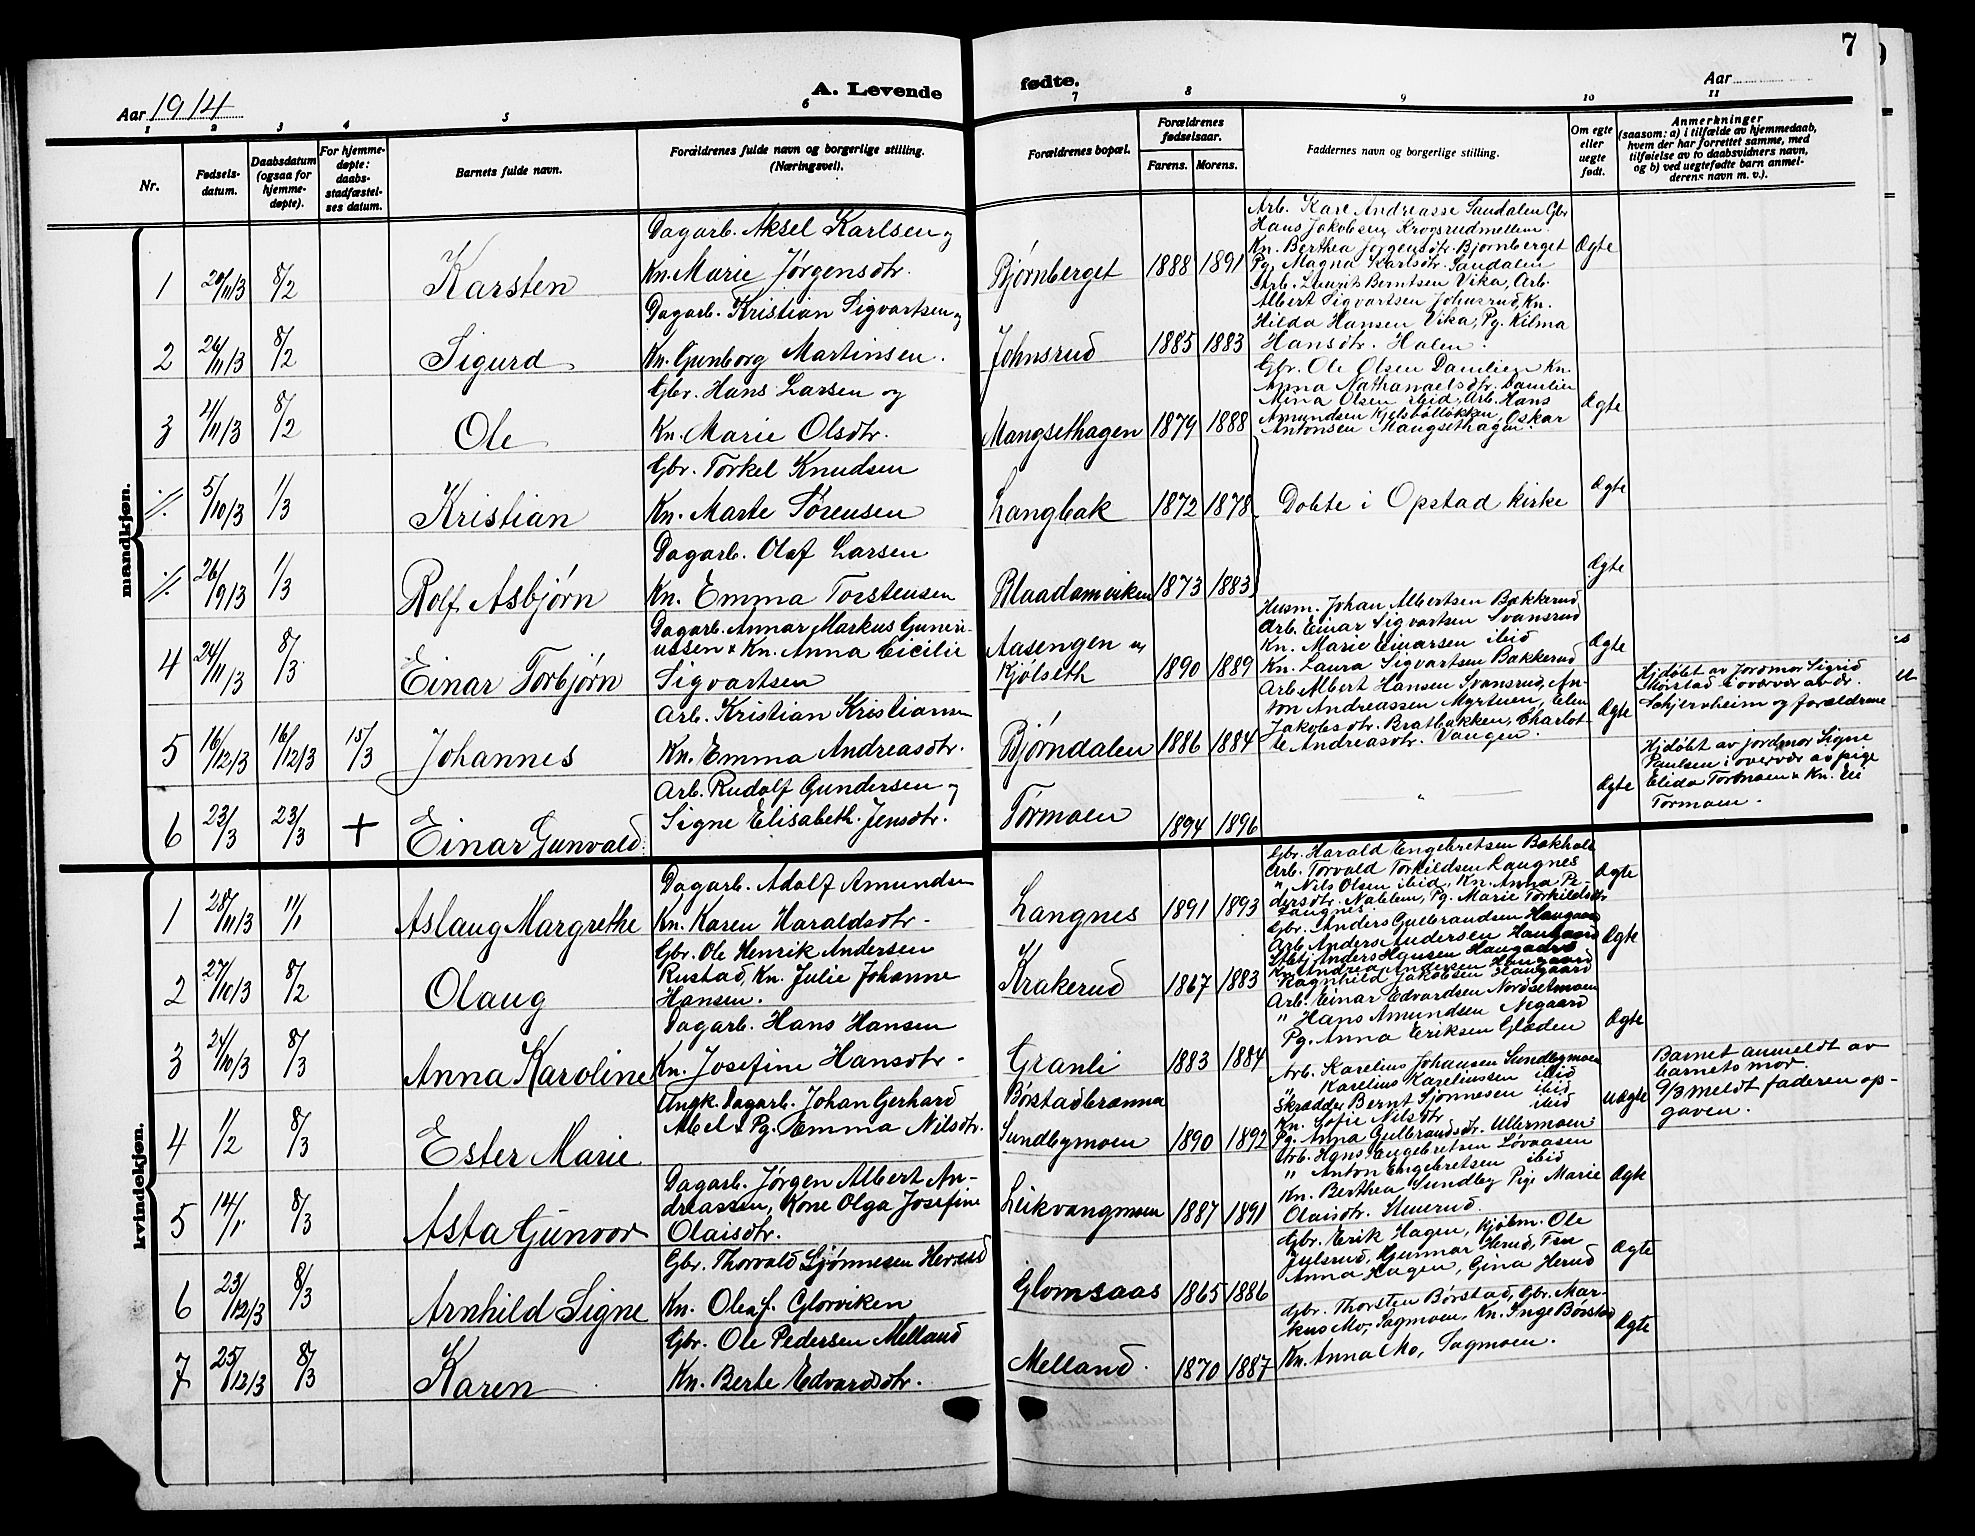 7
Aar 1914
A. Levende fødte.
Aar
1 2 3 4 5 6 7 8 9 10 11
Nr.
Fødsels-
datum.
Daabsdatum
(ogsaa for
hjemme-
døpte).
For hjemme-
døpte:
daabs-
stadfæstel-
ses datum.
Barnets fulde navn.
Forældrenes fulde navn og borgerlige stilling.
(Næringsvei).
Forældrenes bopæl.
Forældrenes
fødselsaar.
Farens. Morens.
Faddernes navn og borgerlige stilling.
Om egte
eller
uegte
født.
Anmerkninger
(saasom: a) i tilfælde av hjemmedaab,
hvem der har forrettet samme, med
tilføielse av to daabsvidners navn,
og b) ved uegtefødte barn anmel-
derens navn m. v.).
mandkjøn.
1 20/11/3 8/2 Karsten
Dagarb. Aksel Karlsen og
Kn. Marie Jørgensdtr.
Bjørnberget 1888 1891
Arb. Kare Andreasse Sandalen Gbr
Hans Jakobsen Krogsrudmellem
Kn. Berthea Jørgensdtr. Bjørnberget
Pg. Magna Karlsdtr. Sandalen
Ægte
2 26/11/3 8/2 Sigurd
Dagarb. Kristian Sigvartsen og
Kn. Gunborg Martinsen.
Johnsrud 1885 1883
Arb. Laurits Berntsen Vika, Arb.
Albert Sigvartsen Johnsrud, Kn.
Hilda Hansen Vika, Pg. Kilma
Hansdtr. Halen.
3 4/11/3 8/2 Ole
Gbr. Hans Larsen og
Kn. Marie Olsdtr.
Mangsethagen 1879 1888
Gbr. Ole Olsen Danilien Kn.
Anna Nathanaelsdtr. Danilien
Mina Olsen ibid, Arb. Hans
Amundsen Kjelsbølløkken, Oskar
Antonsen Mangsethagen.
Ægte
·/· 5/10/3 1/3 Kristian
Gbr. Torkel Knudsen
Kn. Marte Sørensen
Langbak 1872 1878
Døbte i Opstad kirke
Ægte
·/· 26/9/3 1/3 Rolf Asbjørn
Dagarb. Olaf Larsen
Kn. Emma Torstensen
Blaadamviken 1873 1883
Ægte
4 24/11/3 8/3 Einar Torbjørn
Dagarb. Annar Markus Guneri-
ussen & Kn. Anna Cicilie
Sigvartsen
Aasengen
Kjølseth 1890 1889
Husm. Johan Albertsen Bakkerud
Arb. Einar Sigvartsen Svansrud
Kn. Marie Einarsen ibid
Kn. Laura Sigvartsen Bakkerud
Ægte
5 16/12/3 16/12/3 15/3 Johannes
Arb. Kristian Kristiansen
Kn. Emma Andreasdtr.
Bjørndalen 1886 1884
Arb Albert Hansen Svansrud, An-
ton Andreassen Myrtuen, Elen
Jakobsdtr. Bratbakken, Charlot-
te Andreasdtr. Vangen.
Ægte
Hjdøbt av jordmor Sigrid
Mørstad i overvær av dr.
Schjervheim og forældrene
6 23/3 23/3 + Einar Gunvald
Arb. Rudolf Gundersen og
Signe Elisabeth Jensdtr.
Tørmoen 1894 1896
"
Ægte
Hjdøbt av jordmor Signe
Paulsen i overvær av pige
Elida Tormoen & Kn. Eli
Tormoen.
kvindekjøn.
1 28/11/3 11/1 Aslaug Margrethe
Dagarb. Adolf Amundsen
Kn. Karen Haraldsdtr.
Langnes 1891 1893
Gbr. Harald Engebretsen Bækhole
Arb. Torvald Torkildsen Langnes
" Nils Olsen ibid, Kn. Anna Pe-
dersdtr. Nablem, Pg. Marie Torkildsdtr
Langnes
Ægte
2 27/10/3 8/2 Olaug
Gbr. Ole Henrik Andersen
Rustad, Kn. Julie Johanne
Hansen.
Krakerud 1867 1883
Gbr. Anders Gulbrandsen Haugaard
Arb. Anders Andersen Haugaard
Anders Hansen Haugaard
Kn Andrea Andersen Haugaard
Ragnhild Jakobsen Haugaard
Ægte
3 24/10/3 8/3 Anna Karoline
Dagarb. Hans Hansen
Kn. Josefine Hansdtr.
Granli 1883 1884
Arb. Einar Edvardsen Nordsetmoen
" Hans Amundsen Negaard
Pg. Anna Eriksen Gladen
Ægte
4 1/2 8/3 Ester Marie
Ungk. Dagarb. Johan Gerhard
Abel & Pg. Emma Nilsdtr.
Børstadbrænna
Sundbymoen 1890 1892
Arb. Karelius Johansen Sundbymoen
" Karelius Kareliussen ibid
Skrædder Bernt Sjønnesen ibid
Kn. Sofie Nilsdtr ibid
Pg. Anna Gulbrandsdtr. Ullermoen
uægte
Barnet anmeldt av
barnets mor.
9/3 meldt faderen op-
gaven.
5 14/1 8/3 Asta Gunvor
Dagarb. Jørgen Albert An-
dreassen, Kone Olga Josefine
Olaisdtr.
Leikvangmoen 1887 1891
Arb. Hans Engebretsen Løvaasen
" Anton Engebretsen ibid
Kn. Berthea Sundby Pige Marie
Olaisdtr. Stuerud
Ægte
6 23/12/3 8/3 Arnhild Signe
Gbr. Thorvald Sjønnesen Herud
Kn. Oleaf. Glorviken
Glomsaas 1865 1886
Gbr. Erik Hagen, Kjøbm. Ole
Julsrud, Gunnar Herud, Fru
Anna Hagen, Gina Herud
Ægte
7 25/12/3 8/3 Karen
Gbr. Ole Pedersen Melland
Kn. Berte Edvardsdtr.
Melland. 1870 1887
Gbr. Thorsten Børstad, Gbr. Mar-
kus Mo, Sagmoen, Kn. Inge Børstad
Kn. Anna Mo, Sagmoen.
Ægte